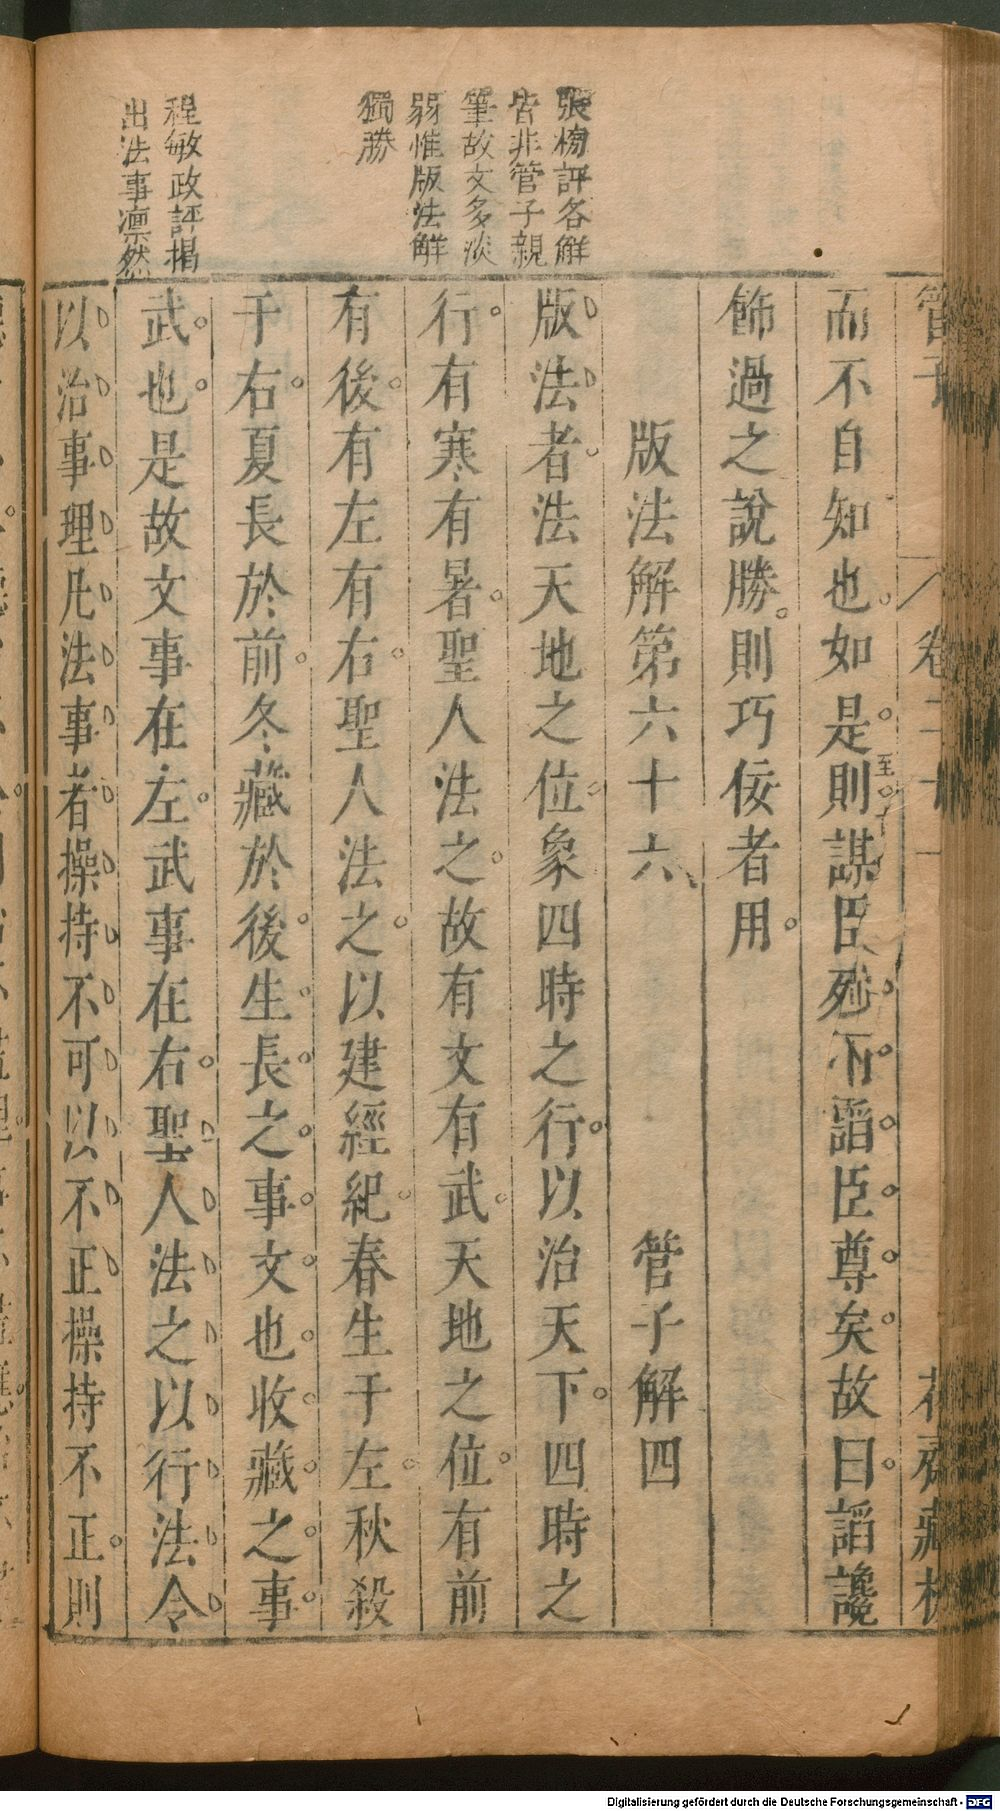 管子
卷二十一
花齋藏板
而不自知也如是則謀臣死而謟臣尊矣故曰謟讒
至
飾過之說勝則巧佞者用
版法解第六十六 管子解四
版法者法天地之位象四時之行以治天下四時之
行有寒有暑聖人法之故有文有武天地之位有前
有後有左有右聖人法之以建經紀春生于左秋殺
于右夏長於前冬藏於後生長之事文也收藏之事
武也是故文事在左武事在右聖人法之以行法令
以治事理凡法事者操持不可以不正操持不正則
張榜評各解
皆非管子親
筆故文多淡
弱惟版法解
獨勝
程敏政評揭
出法事凛然
Digitalisierung gefördert durch die Deutsche Forschungsgemeinschaft - DFG